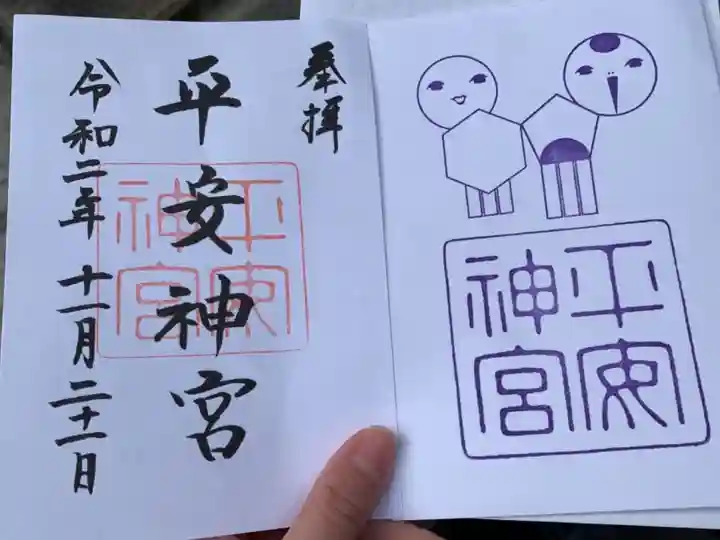 奉拝
平安神宮
平安神宮
令和二年 十一月 二十一日
平安神宮